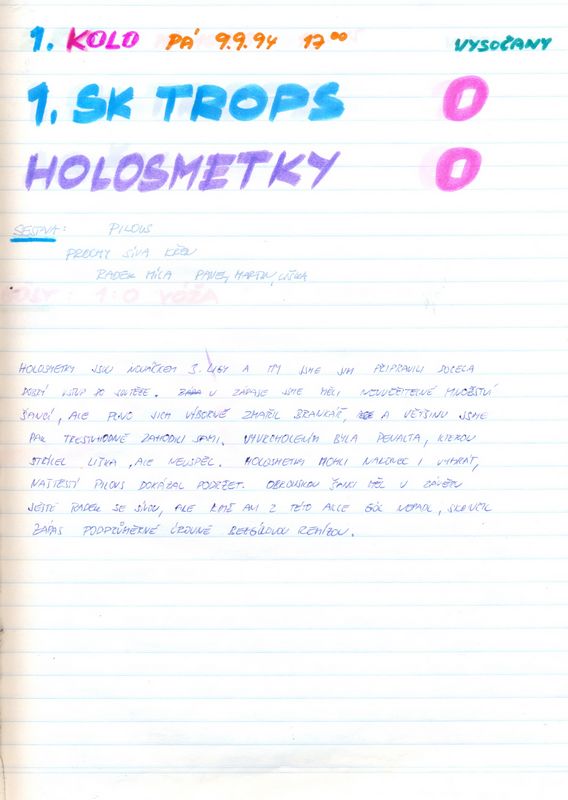 1. KOLO PÁ 9.9.94 17⁰⁰ VYSOČANY
1. SK TROPS 0
HOLOSMETKY 0
SESTAVA: PILOUS
PROCHY SÍVA KŘEN
RADEK MÍLA PAVEL, MARTIN, LIŠKA
1:0 VÓŽA
HOLOSMETKY JSOU NOVÁČKEM 3. LIGY A MY JSME JIM PŘIPRAVILI DOCELA
DOBRÝ VSTUP DO SOUTĚŽE. V ZÁPASE JSME MĚLI NEUVĚŘITELNÉ MNOŽSTVÍ
ŠANCÍ, ALE JICH VÝBORNĚ ZMAŘIL BRANKÁŘ, A VĚTŠINU JSME
PAK TRESTUHODNĚ ZAHODILI SAMI. VYVRCHOLENÍM BYLA PENALTA, KTEROU
STŘÍLEL LIŠKA, ALE NEUSPĚL. HOLOSMETKY MOHLI NAKONEC I VYHRÁT,
NAŠTĚSTÍ PILOUS DOKÁZAL PODRŽET. OBROVSKOU ŠANCI MĚL V ZÁVĚRU
JEŠTĚ RADEK SE SÍVOU, ALE KDYŽ ANI Z TÉTO AKCE GÓL NEPADL, SKONČIL
ZÁPAS PODPRŮMĚRNÉ ÚROVNĚ BEZGÓLOVOU REMÍZOU.